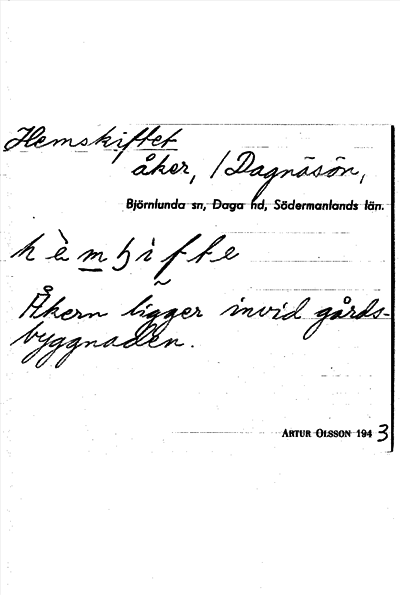 Hemskiftet
åker, / Dagnäsön,
Björnlunda sn, Daga hd, Södermanlands län.
Åkern ligger invid gårds-
byggnaden.
ARTUR OLSSON 1943